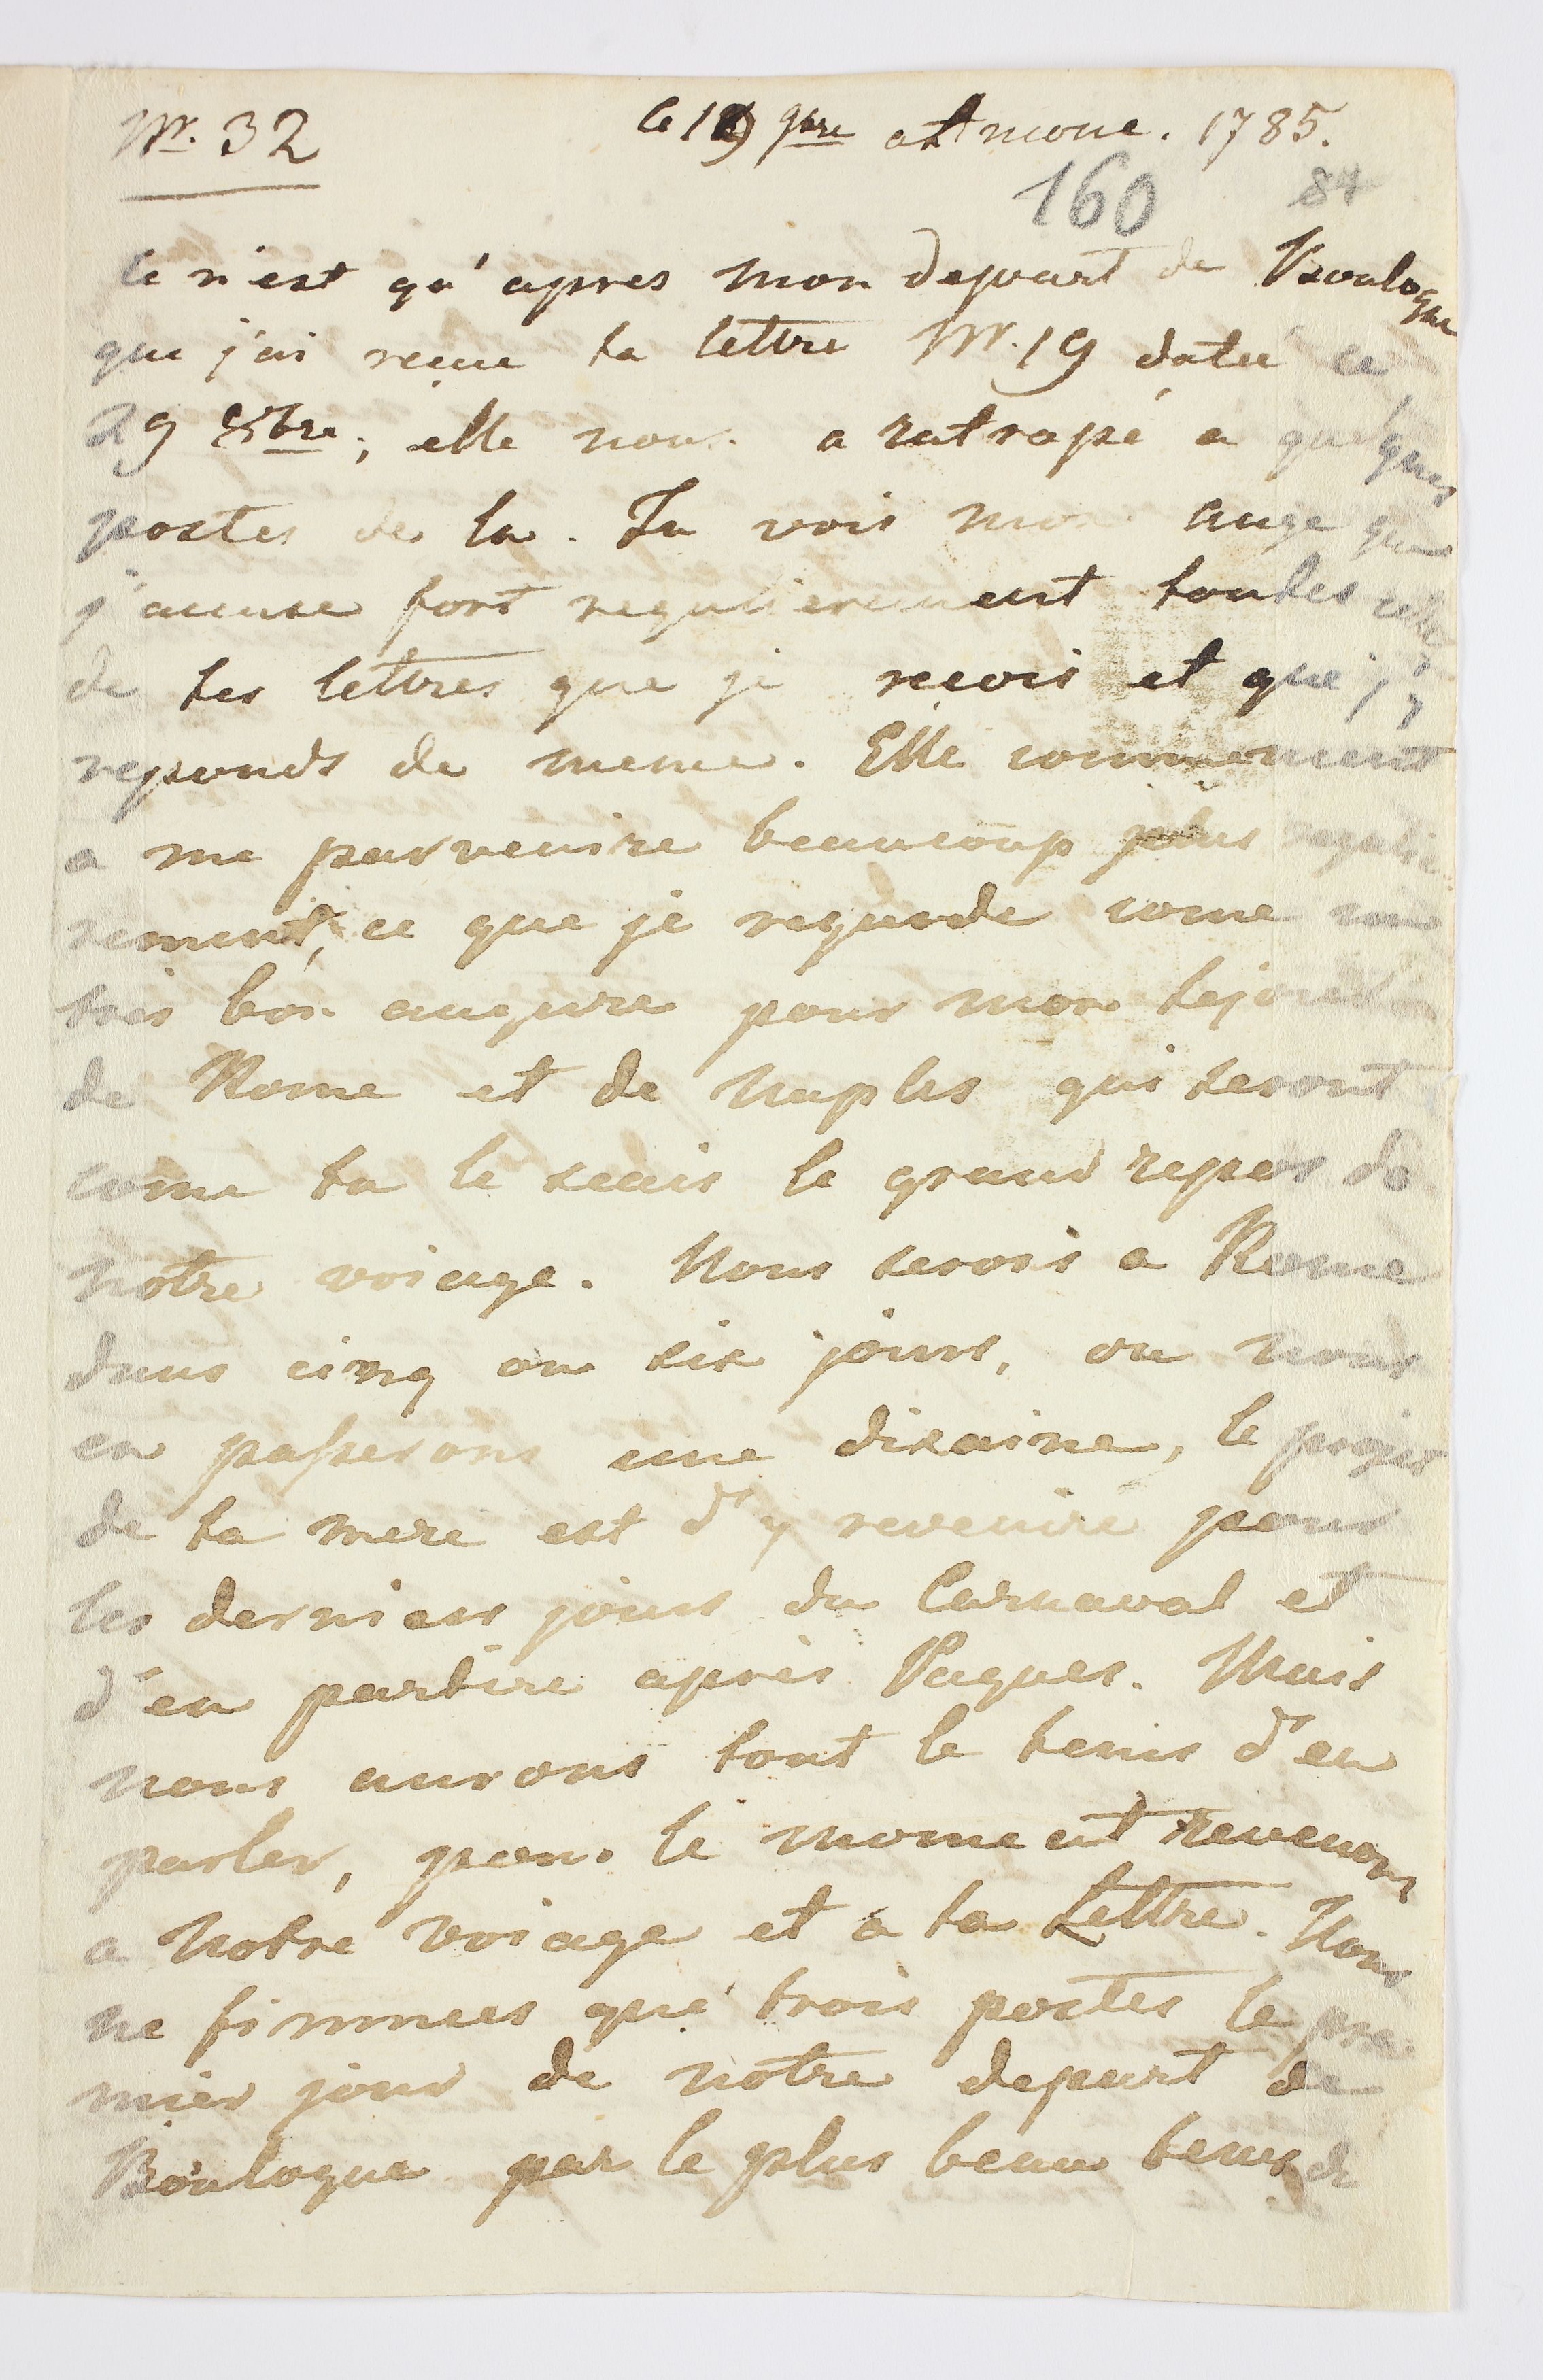 Nr. 32
le 19 9bre at 1785.
160 84
Ce n'est qu'apres mon depart de Boulogne
que j'ai reçue ta lettre Nr. 19 daté le
29 8bre; elle nous a ratrapé a quelques
postes de la. Tu vois mon ange que
j'acuse fort regulierement toutes celle
de tes lettres que je reçois et que j'y
reponds de meme. Elle commencent
a me parvenire beaucoup plus regulie
rement, ce que je regarde come un
très bon augure pour mon sejour
de Rome et de Naples qui seront
come tu le scais le grand repos de
notre voiage. Nous serons a Rome
dans cinq ou six jours, ou nous
en passerons une dixaine, le projet
de ta mere est d'y revenire pour
les derniers jours du Carnaval et
d'en partire après Paques. Mais
nous aurons tout le tems d'en
parler, pour le moment revenons
a notre voiage et a ta Lettre. Nous
ne fimmes que trois postes le pre
mier jour de notre depart de
Boulogne par le plus beau tems de